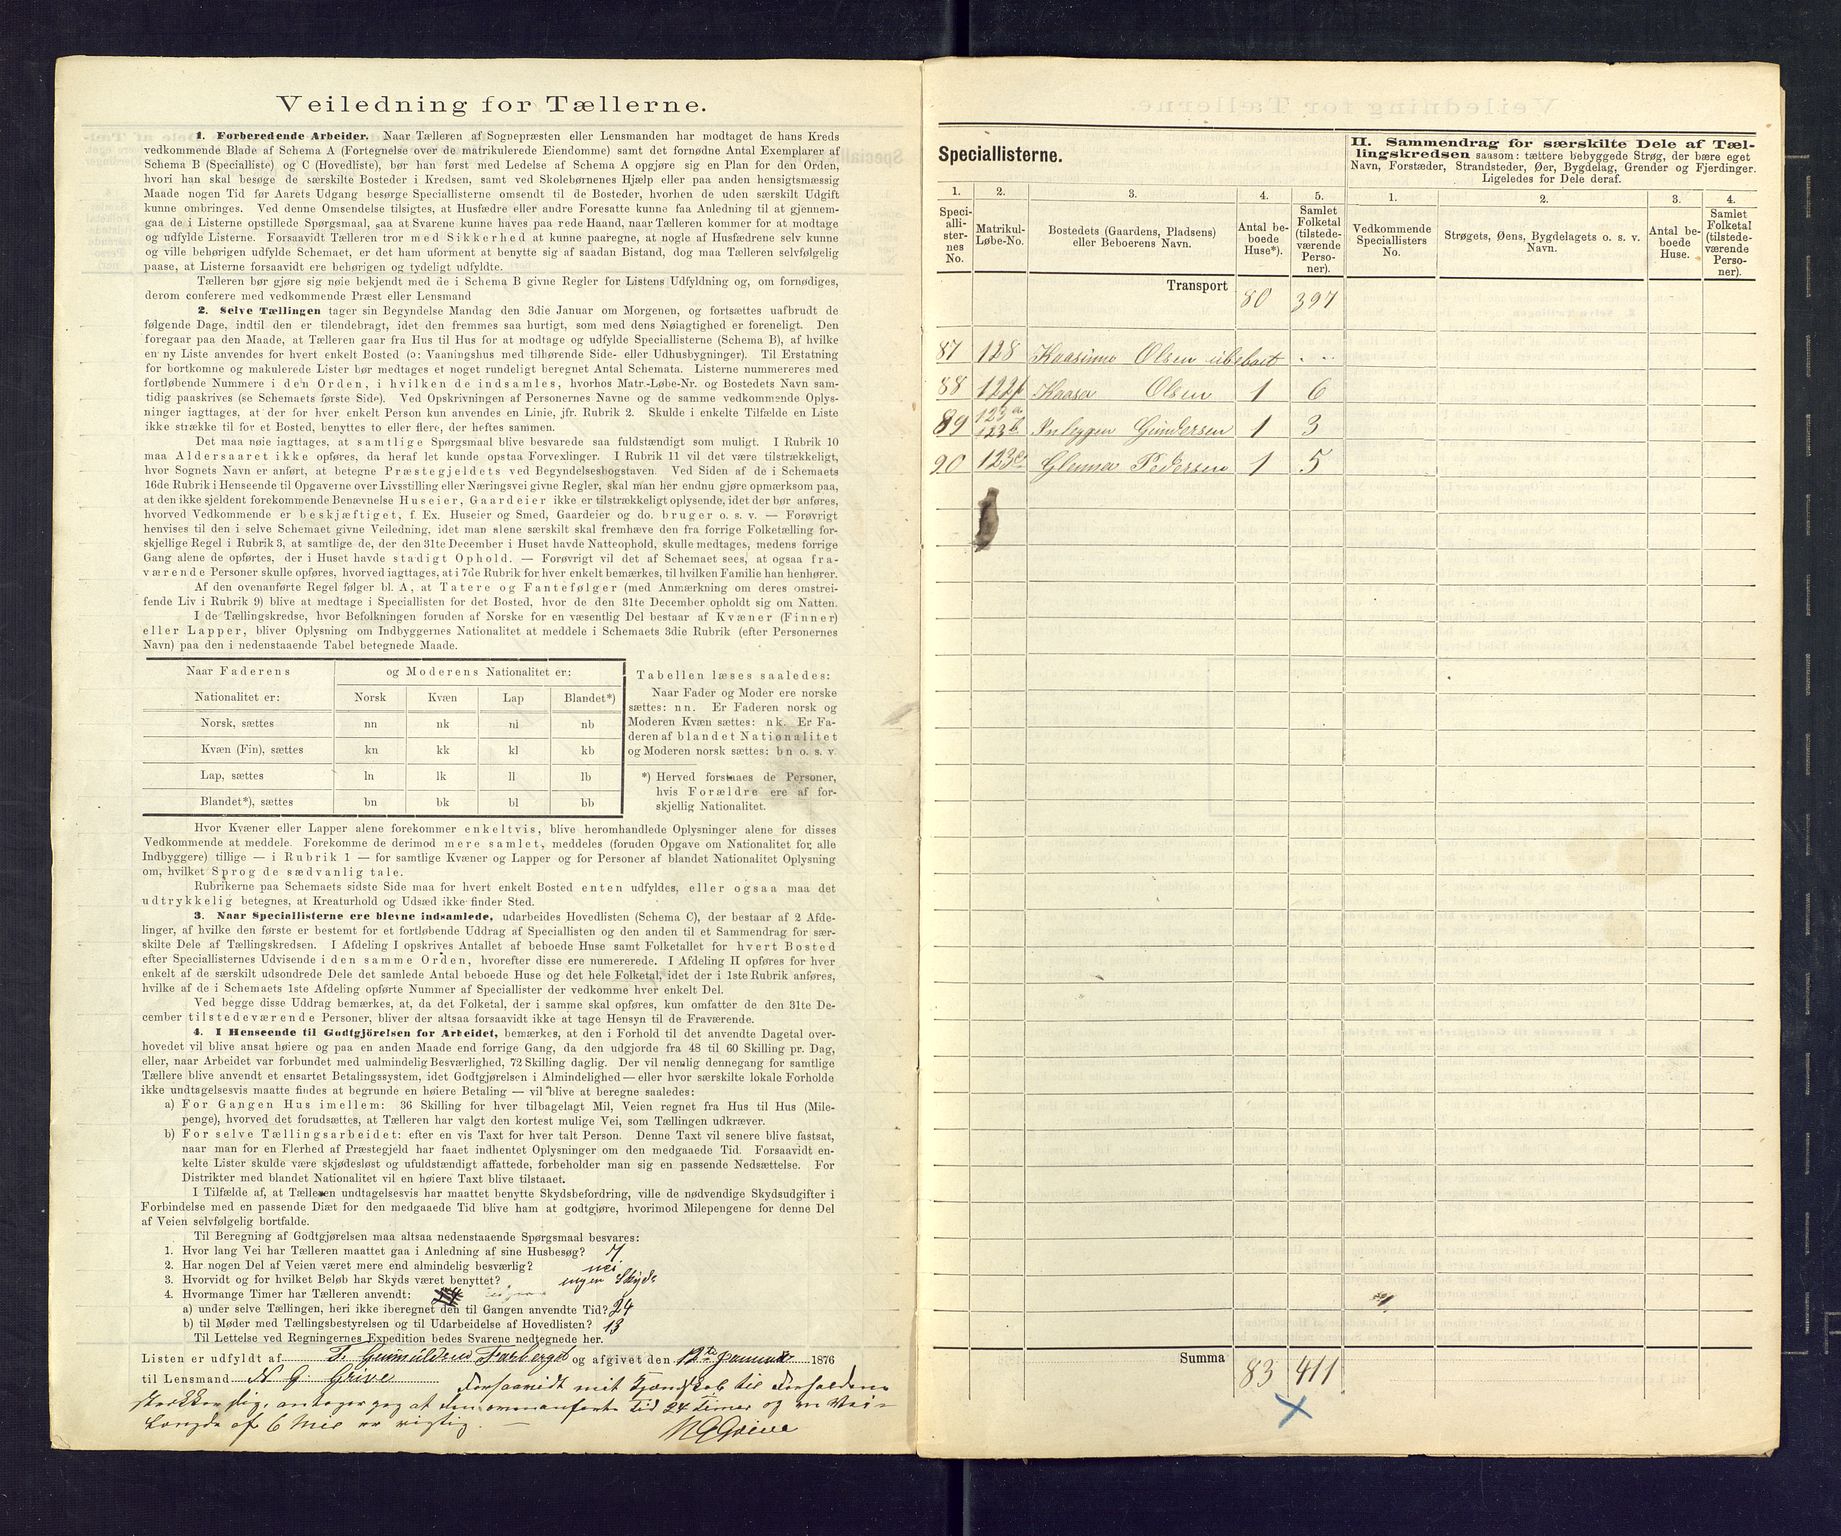 Veiledning for Tællerne.
1. Forberedende Arbeider. Naar Tælleren af Sognepræsten eller Lensmanden har modtaget de hans Kreds
vedkommende Blade af Schema A (Fortegnelse over de matrikulerede Eiendomme) samt det fornødne Antal Exemplarer af
Schema B (Specialliste) og C (Hovedliste), bør han først med Ledelse af Schema A opgjøre sig en Plan for den Orden,
hvori han skal besøge de særskilte Bosteder i Kredsen, samt ved Skolebørnenes Hjælp eller paa anden hensigtsmæssig
Maade nogen Tid før Aarets Udgang besørge Speciallisterne omsendt til de Bosteder, hvorhen de uden særskilt Udgift
kunne ombringes. Ved denne Omsendelse tilsigtes, at Husfædre eller andre Foresatte kunne faa Anledning til at gjennem-
gaa de i Listerne opstillede Spørgsmaal, saa at Svarene kunne haves paa rede Haand, naar Tælleren kommer for at modtage
og udfylde Listerne. Forsaavidt Tælleren tror med Sikkerhed at kunne paaregne, at nogle af Husfædrene selv kunne
og ville behørigen udfylde Schemaet, er det ham uforment at benytte sig af saadan Bistand, dog maa Tælleren selvfølgelig
paase, at Listerne forsaavidt ere behørigen og tydeligt udfyldte.
Tælleren bør gjøre sig nøie bekjendt med de i Schema B givne Regler for Listens Udfyldning og, om fornødiges,
derom conferere med vedkommende Præst eller Lensmand
2. Selve Tællingen tager sin Begyndelse Mandag den 3die Januar om Morgenen, og fortsættes uafbrudt de
følgende Dage, indtil den er tilendebragt, idet den fremmes saa hurtigt, som med dens Nøiagtighed er foreneligt. Den
foregaar paa den Maade, at Tælleren gaar fra Hus til Hus for at modtage og udfylde Speciallisterne (Schema B), af hvilke
en ny Liste anvendes for hvert enkelt Bosted (ɔ: Vaaningshus med tilhørende Side- eller Udhusbygninger). Til Erstatning
for bortkomne og makulerede Lister bør medtages et noget rundeligt beregnet Antal Schemata. Listerne nummereres med
fortløbende Nummere i den Orden, i hvilken de indsamles, hvorhos Matr.-Løbe-Nr. og Bostedets Navn sam-
tidig paaskrives (se Schemaets første Side). Ved Opskrivningen af Personernes Navne og de samme vedkommende Oplys-
ninger iagttages, at der for hver enkelt Person kun anvendes en Linie, jfr. Rubrik 2. Skulde i enkelte Tilfælde en Liste
ikke strække til for et Bosted, benyttes to eller flere, der heftes sammen.
Det maa nøie iagttages, at samtlige Spørgsmaal blive besvarede saa fuldstændigt som muligt. I Rubrik 10
maa Aldersaaret ikke opføres, da heraf let kunde opstaa Forvexlinger. I Rubrik 11 vil det være tilstrækkeligt,
hvor Sognets Navn er anført, at betegne Præstegjeldets ved Begyndelsesbogstaven. Ved Siden af de i Schemaets
16de Rubrik i Henseende til Opgaverne over Livsstilling eller Næringsvei givne Regler, skal man her endnu gjøre opmærksom paa,
at den ikke sjeldent forekommende Benævnelse Huseier, Gaardeier ikke er tilstrækkeligt oplysende, idet der bør anføres,
hvorved Vedkommende er beskjæftiget, f. Ex. Huseier og Smed, Gaardeier og do. bruger o. s. v. — Forøvrigt
henvises til den i selve Schemaet givne Veiledning, idet man alene særskilt skal fremhæve den fra forrige Folketælling for-
skjellige Regel i Rubrik 3, at samtlige de, der den 31te December i Huset havde Natteophold, skulle medtages, medens forrige
Gang alene de opførtes, der i Huset havde stadigt Ophold. — Forøvrigt vil det af Schemaet sees, at ogsaa fra-
værende Personer skulle opføres, hvorved iagttages, at i 7de Rubrik for hver enkelt bemærkes, til hvilken Familie han henhører.
Af den ovenanførte Regel følger bl. A, at Tatere og Fantefølger (med Anmærkning om deres omstrei-
fende Liv i Rubrik 9) blive at medtage i Speciallisten for det Bosted, hvor de den 31te December opholdt sig om Natten.
I de Tællingskredse, hvor Befolkningen foruden af Norske for en væsentlig Del bestaar af Kvæner (Finner)
eller Lapper, bliver Oplysning om Indbyggernes Nationalitet at meddele i Schemaets 3die Rubrik (efter Personernes
Navn) paa den i nedenstaaende Tabel betegnede Maade.
Naar Faderens og Moderens Nationalitet er:
Nationalitet er: Norsk Kvæn Lap Blandet*)
Norsk, sættes nn nk nl nb
Kvæn (Fin), sættes kn kk kl kb
Lap, sættes ln lk ll lb
Blandet*), sættes bn bk bl bb
Tabellen læses saaledes:
Naar Fader og Moder ere norske
sættes: nn. Er Faderen norsk og
Moderen Kvæn sættes: nk. Er Fa-
deren af blandet Nationalitet
og Moderen norsk sættes: bn o. s. v.
*) Herved forstaaes de Personer,
hvis Forældre ere af for-
skjellig Nationalitet.
Hvor Kvæner eller Lapper alene forekommer enkeltvis, blive heromhandlede Oplysninger alene for disses
Vedkommende at meddele. Forekomme de derimod mere samlet, meddeles (foruden Opgave om Nationalitet for alle
Indbyggere) tillige — i Rubrik 1 — for samtlige Kvæner og Lapper og for Personer af blandet Nationalitet Oplysning
om, hvilket Sprog de sædvanlig tale.
Rubrikerne paa Schemaets sidste Side maa for hvert enkelt Bosted enten udfyldes, eller ogsaa maa det
udtrykkelig betegnes, at Kreaturhold og Udsæd ikke finder Sted.
3. Naar Speciallisterne ere blevne indsamlede, udarbeides Hovedlisten (Schema C), der bestaar af 2 Afde-
linger, af hvilke den første er bestemt for et fortløbende Uddrag af Speciallisten og den anden til et Sammendrag for sær-
skilte Dele af Tællingskredsen. I Afdeling I opskrives Antallet af beboede Huse samt Folketallet for hvert Bosted
efter Speciallisternes Udvisende i den samme Orden, hvorefter disse ere numererede. I Afdeling II opføres for hver
enkelt af de særskilt udsondrede Dele det samlede Antal beboede Huse og det hele Folketal, idet der i 1ste Rubrik anføres,
hvilke af de i Schemaets 1ste Afdeling opførte Nummer af Speciallister der vedkomme hver enkelt Del.
Ved begge disse Uddrag bemærkes, at, da det Folketal, der i samme skal opføres, kun omfatter de den 31te De-
cember tilstedeværende Personer, bliver der altsaa forsaavidt ikke at tage Hensyn til de Fraværende.
4. I Henseende til Godtgjörelsen for Arbeidet, bemærkes, at den i Forhold til det anvendte Dagetal over-
hovedet vil blive ansat høiere og paa en anden Maade end forrige Gang, da den udgjorde fra 48 til 60 Skilling pr. Dag,
eller, naar Arbeidet var forbundet med ualmindelig Besværlighed, 72 Skilling daglig. Der vil nemlig dennegang for samtlige
Tællere blive anvendt et ensartet Betalingssystem, idet Godtgjørelsen i Almindelighed — eller hvor særskilte lokale Forholde
ikke undtagelsesvis maatte findes at begrunde en høiere Betaling — vil blive at beregne saaledes:
a) For Gangen Hus imellem: 36 Skilling for hver tilbagelagt Mil, Veien regnet fra Hus til Hus (Mile-
penge), hvorved det forudsættes, at Tælleren har valgt den kortest mulige Vei, som Tællingen udkræver.
b) For selve Tællingsarbeidet: efter en vis Taxt for hver talt Person. Denne Taxt vil senere blive fastsat,
naar man for en Flerhed af Præstegjeld har faaet indhentet Oplysninger om den medgaaede Tid. Forsaavidt en-
kelte Lister skulde være skjødesløst og ufuldstændigt affattede, forbeholder man sig en passende Nedsættelse. For
Distrikter med blandet Nationalitet vil en høiere Taxt blive tilstaaet.
I Tilfælde af, at Tælleren undtagelsesvis har maattet benytte Skydsbefordring, ville de nødvendige Skydsudgifter i
Forbindelse med en passende Diæt for den medgaaede Tid blive ham at godtgjøre, hvorimod Milepengene for denne Del
af Veien selvfølgelig bortfalde.
Til Beregning af Godtgjørelsen maa altsaa nedenstaaende Spørgsmaal besvares:
1. Hvor lang Vei har Tælleren maattet gaa i Anledning af sine Husbesøg? 7
2. Har nogen Del af Veien været mere end almindelig besværlig? nei
3. Hvorvidt og for hvilket Beløb har Skyds været benyttet? ingen Skyds
4. Hvormange Timer har Tælleren anvendt:
a) under selve Tællingen, heri ikke iberegnet den til Gangen anvendte Tid? 24
b) til Møder med Tællingsbestyrelsen og til Udarbeidelse af Hovedlisten? 13
Til Lettelse ved Regningernes Expedition bedes Svarene nedtegnede her.
Listen er udfyldt af T. Gunnuldsen Farberget og afgivet den 12te Januar 1876
til Lensmand N G Grive
Forsaavidt mit Kjendskab til Forholdene
strækker sig, antager jeg at den ovenanførte Tid 24 Timer og en Vei-
Længde af 6 Mile er rigtig. —
N G Grive
Speciallisterne.
II. Sammendrag for særskilte Dele af Tæl-
lingskredsen saasom: tættere bebyggede Strøg, der bære eget
Navn, Forstæder, Strandsteder, Øer, Bygdelag, Grender og Fjerdinger.
Ligeledes for Dele deraf.
1. 2. 3. 4. 5. 1. 2. 3. 4.
Speci-
alli-
ster-
nes
No.
Matrikul-
Løbe-No.
Bostedets (Gaardens, Pladsens)
eller Beboerens Navn.
Antal be-
boede
Huse*).
Samlet
Folketal
(tilstede-
værende
Perso-
ner).
Vedkommende
Speciallisters
No.
Strøgets, Øens, Bygdelagets o. s. v.
Navn.
Antal be-
boede
Huse.
Samlet
Folketal
(tilstede-
værende
Perso-
ner).
Transport 80 397
87 128 Kaasinno Olsen ubeboet . ..
88 122 Kaasa Olsen 1 6
89 123a 123b Inleggen Gundersen 1 3
90 123c Glenna Pedersen 1 5
Summa 83 411